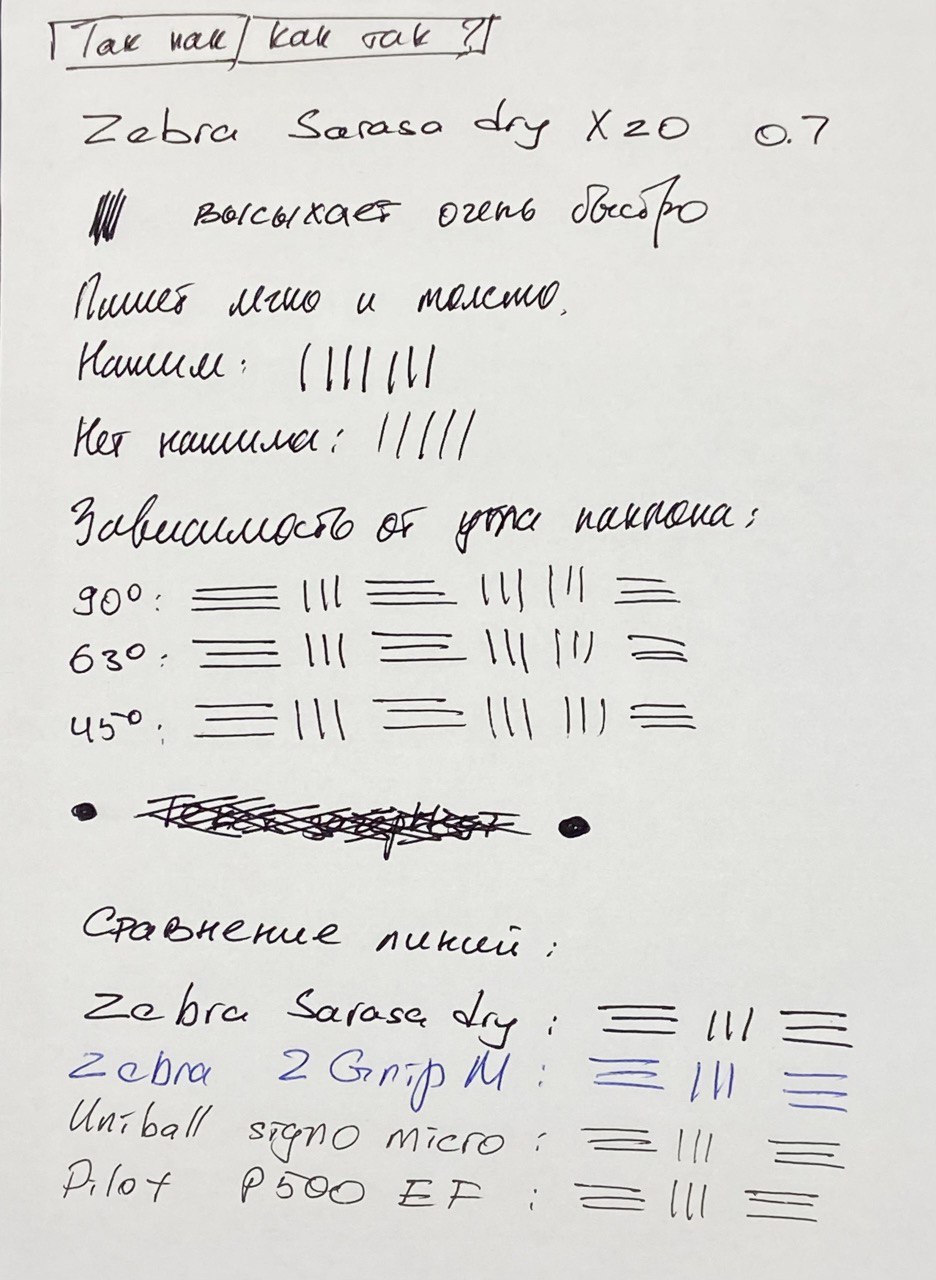 Так как / Как так ?
Zebra Sarasa dry X20 0.7
высыхает очень быстро
Пишет легко и толсто.
Нажим:
Нет нажима:
Зависимость от угла наклона:
90°:
63°:
45°:
Сравнение линий:
Zebra Sarasa dry :
Zebra Z Grip M :
Uniball signo micro :
Pilot P500 EF :